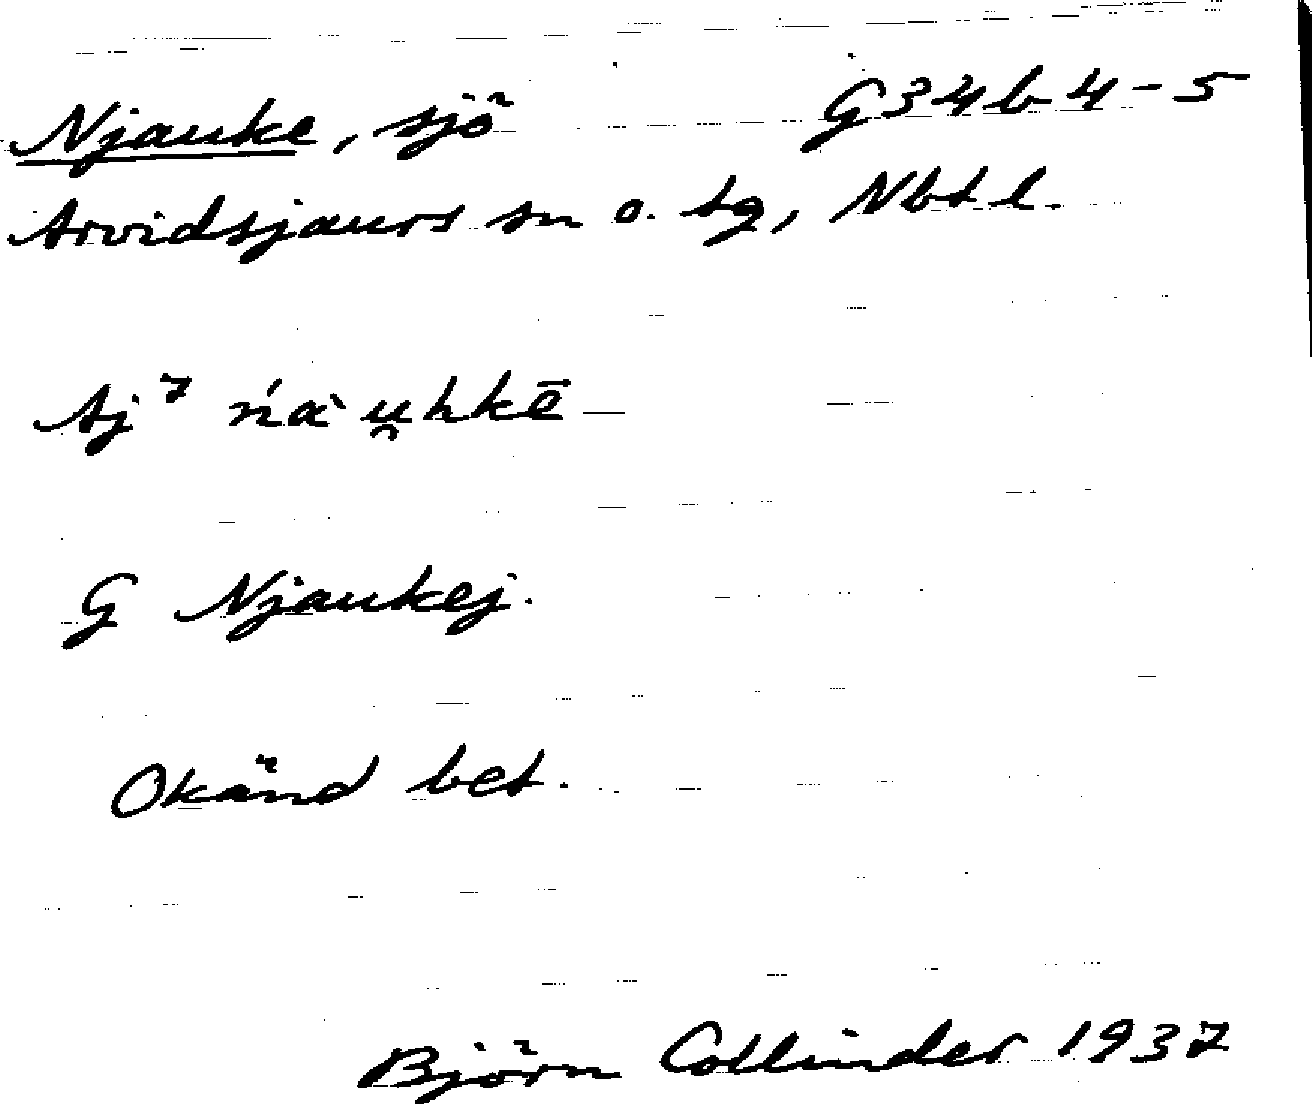 Njauke, sjö G34b4-5
Arvidsjaurs sn o. tg, Nbtl.
Aj 7 ńàu̯hkē
G Njaukej.
Okänd bet.
Björn Collinder 1937